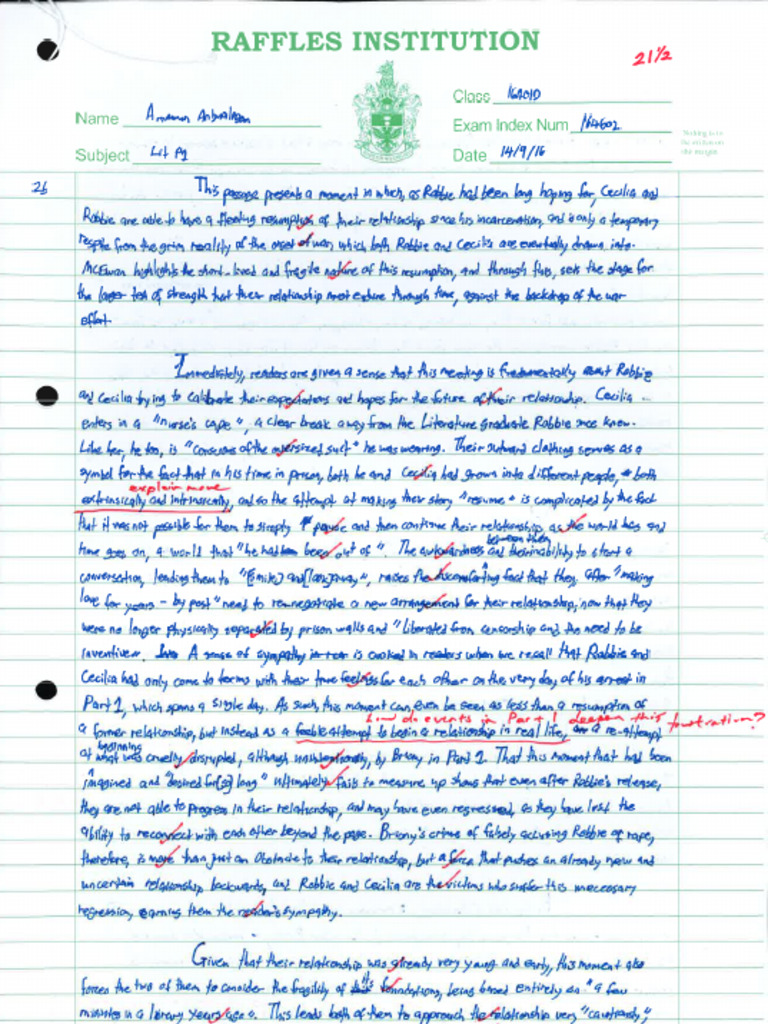 RAFFLES INSTITUTION
21½
Class 16A01D
Name
Exam Index Num
Nothing to
Subject Lit P1
Date 14/9/16
26
This passage presents a moment in which, as Robbie had been long hoping for, Cecilia and
Robbie are able to have a fleeting resumption of their relationship since his incarceration, and is only a temporary
respite from the grim reality of the onset of war, which both Robbie and Cecilia are eventually drawn into.
McEwan highlights the short-lived and fragile nature of this resumption, and through this, sets the stage for
the larger test of strength that their relationship must endure through time, against the backdrop of the war
effort.
Immediately, readers are given a sense that this meeting is fundamentally about Robbie
and Cecilia trying to calibrate their expectations and hopes for the future of their relationship. Cecilia
enters in a "nurse's cape", a clear break away from the Literature graduate Robbie once knew.
Like her, he too, is "conscious of the oversized suit" he was wearing. Their outward clothing serves as a
symbol for the fact that in his time in prison, both he and Cecilia had grown into different people, both
explain more
extrinsically and intrinsically, and so the attempt at making their story "resume" is complicated by the fact
that it was not possible for them to simply pause and then continue their relationship, as the world has and
between them
time goes on, a world that "he had been out of". The awkwardness and their inability to start a
conversation, leading them to "[smile] and [look] away", raises the discomforting fact that they, after "making
love for years - by post" need to re-negotiate a new arrangement for their relationship, now that they
were no longer physically separated by prison walls and "liberated from censorship and the need to be
inventive". A sense of sympathy is evoked in readers when we recall that Robbie and
Cecilia had only come to terms with their true feelings for each other on the very day of his arrest in
Part 1, which spans a single day. As such, this moment can even be seen as less than a resumption of
how do events in Part 1 deepen this frustration?
a former relationship, but instead as a feeble attempt to begin a relationship in real life, a re-attempt
beginning
at what was cruelly disrupted, although unintentionally, by Briony in Part 1. That this moment that had been
"imagined and desired for [so] long" ultimately fails to measure up shows that even after Robbie's release,
they are not able to progress in their relationship, and may have even regressed, as they have lost the
ability to reconnect with each other beyond the page. Briony's crime of falsely accusing Robbie of rape,
therefore, is more than just an obstacle to their relationship, but a force that pushes an already new and
uncertain relationship backwards, and Robbie and Cecilia are the victims who suffer this unnecessary
regression, earning them the reader's sympathy.
Given that their relationship was already very young and early, this moment also
forces the two of them to consider the fragility of its foundations, being based entirely on "a few
minutes in a library years ago". This leads both of them to approach the relationship very "cautiously",